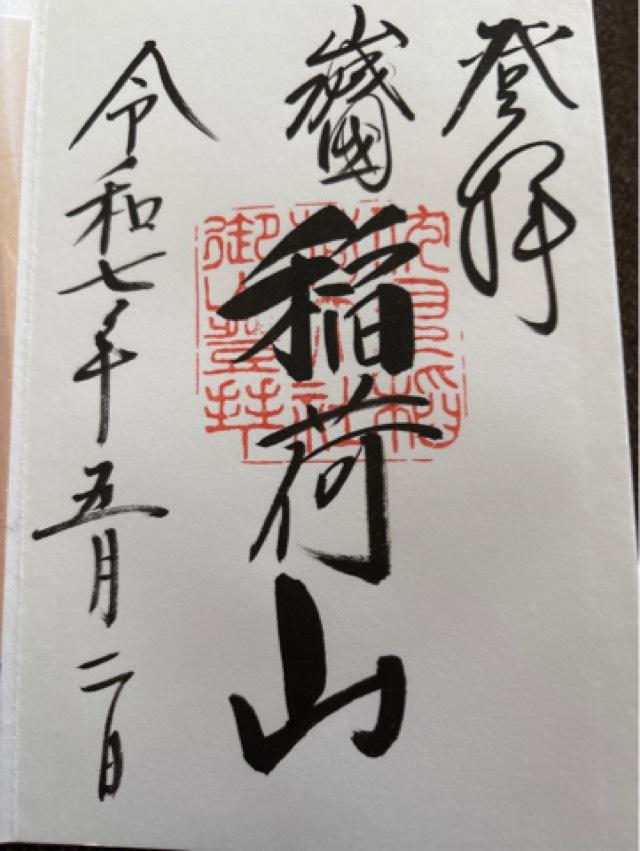 登拝
稲荷山
令和七年五月二日
伏見稲
荷大社
御山登拝